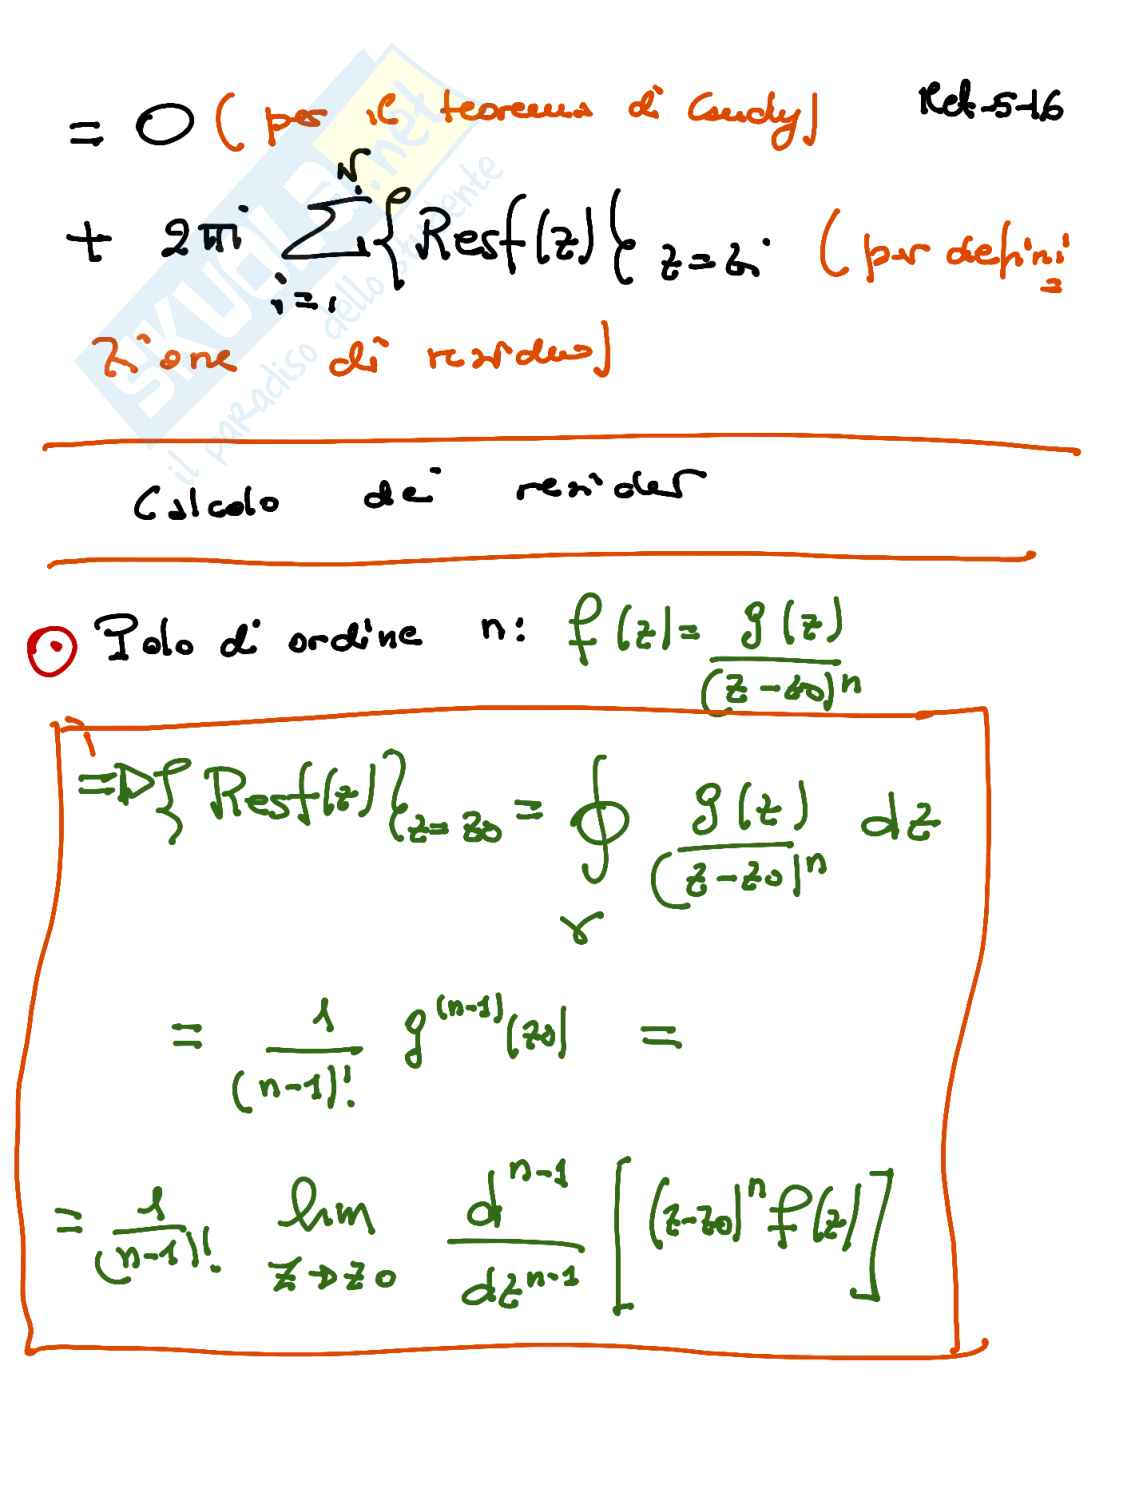 = 0 (per il teorema di Cauchy) Ret-5-16
+ 2πi ∑_{i=1}^{N} {Res f(z)}_{z=zi} (per defini=
zione di residuo)
Calcolo dei residui
⊙ Polo di ordine n: f(z) = g(z)/(z-z0)^n
=> {Res f(z)}_{z=z0} = ∮_γ g(z)/(z-z0)^n dz
= 1/(n-1)! g^(n-1)(z0) =
= 1/(n-1)! lim_{z→z0} d^{n-1}/dz^{n-1} [(z-z0)^n f(z)]
SKUOLA.net
il paradiso dello studente